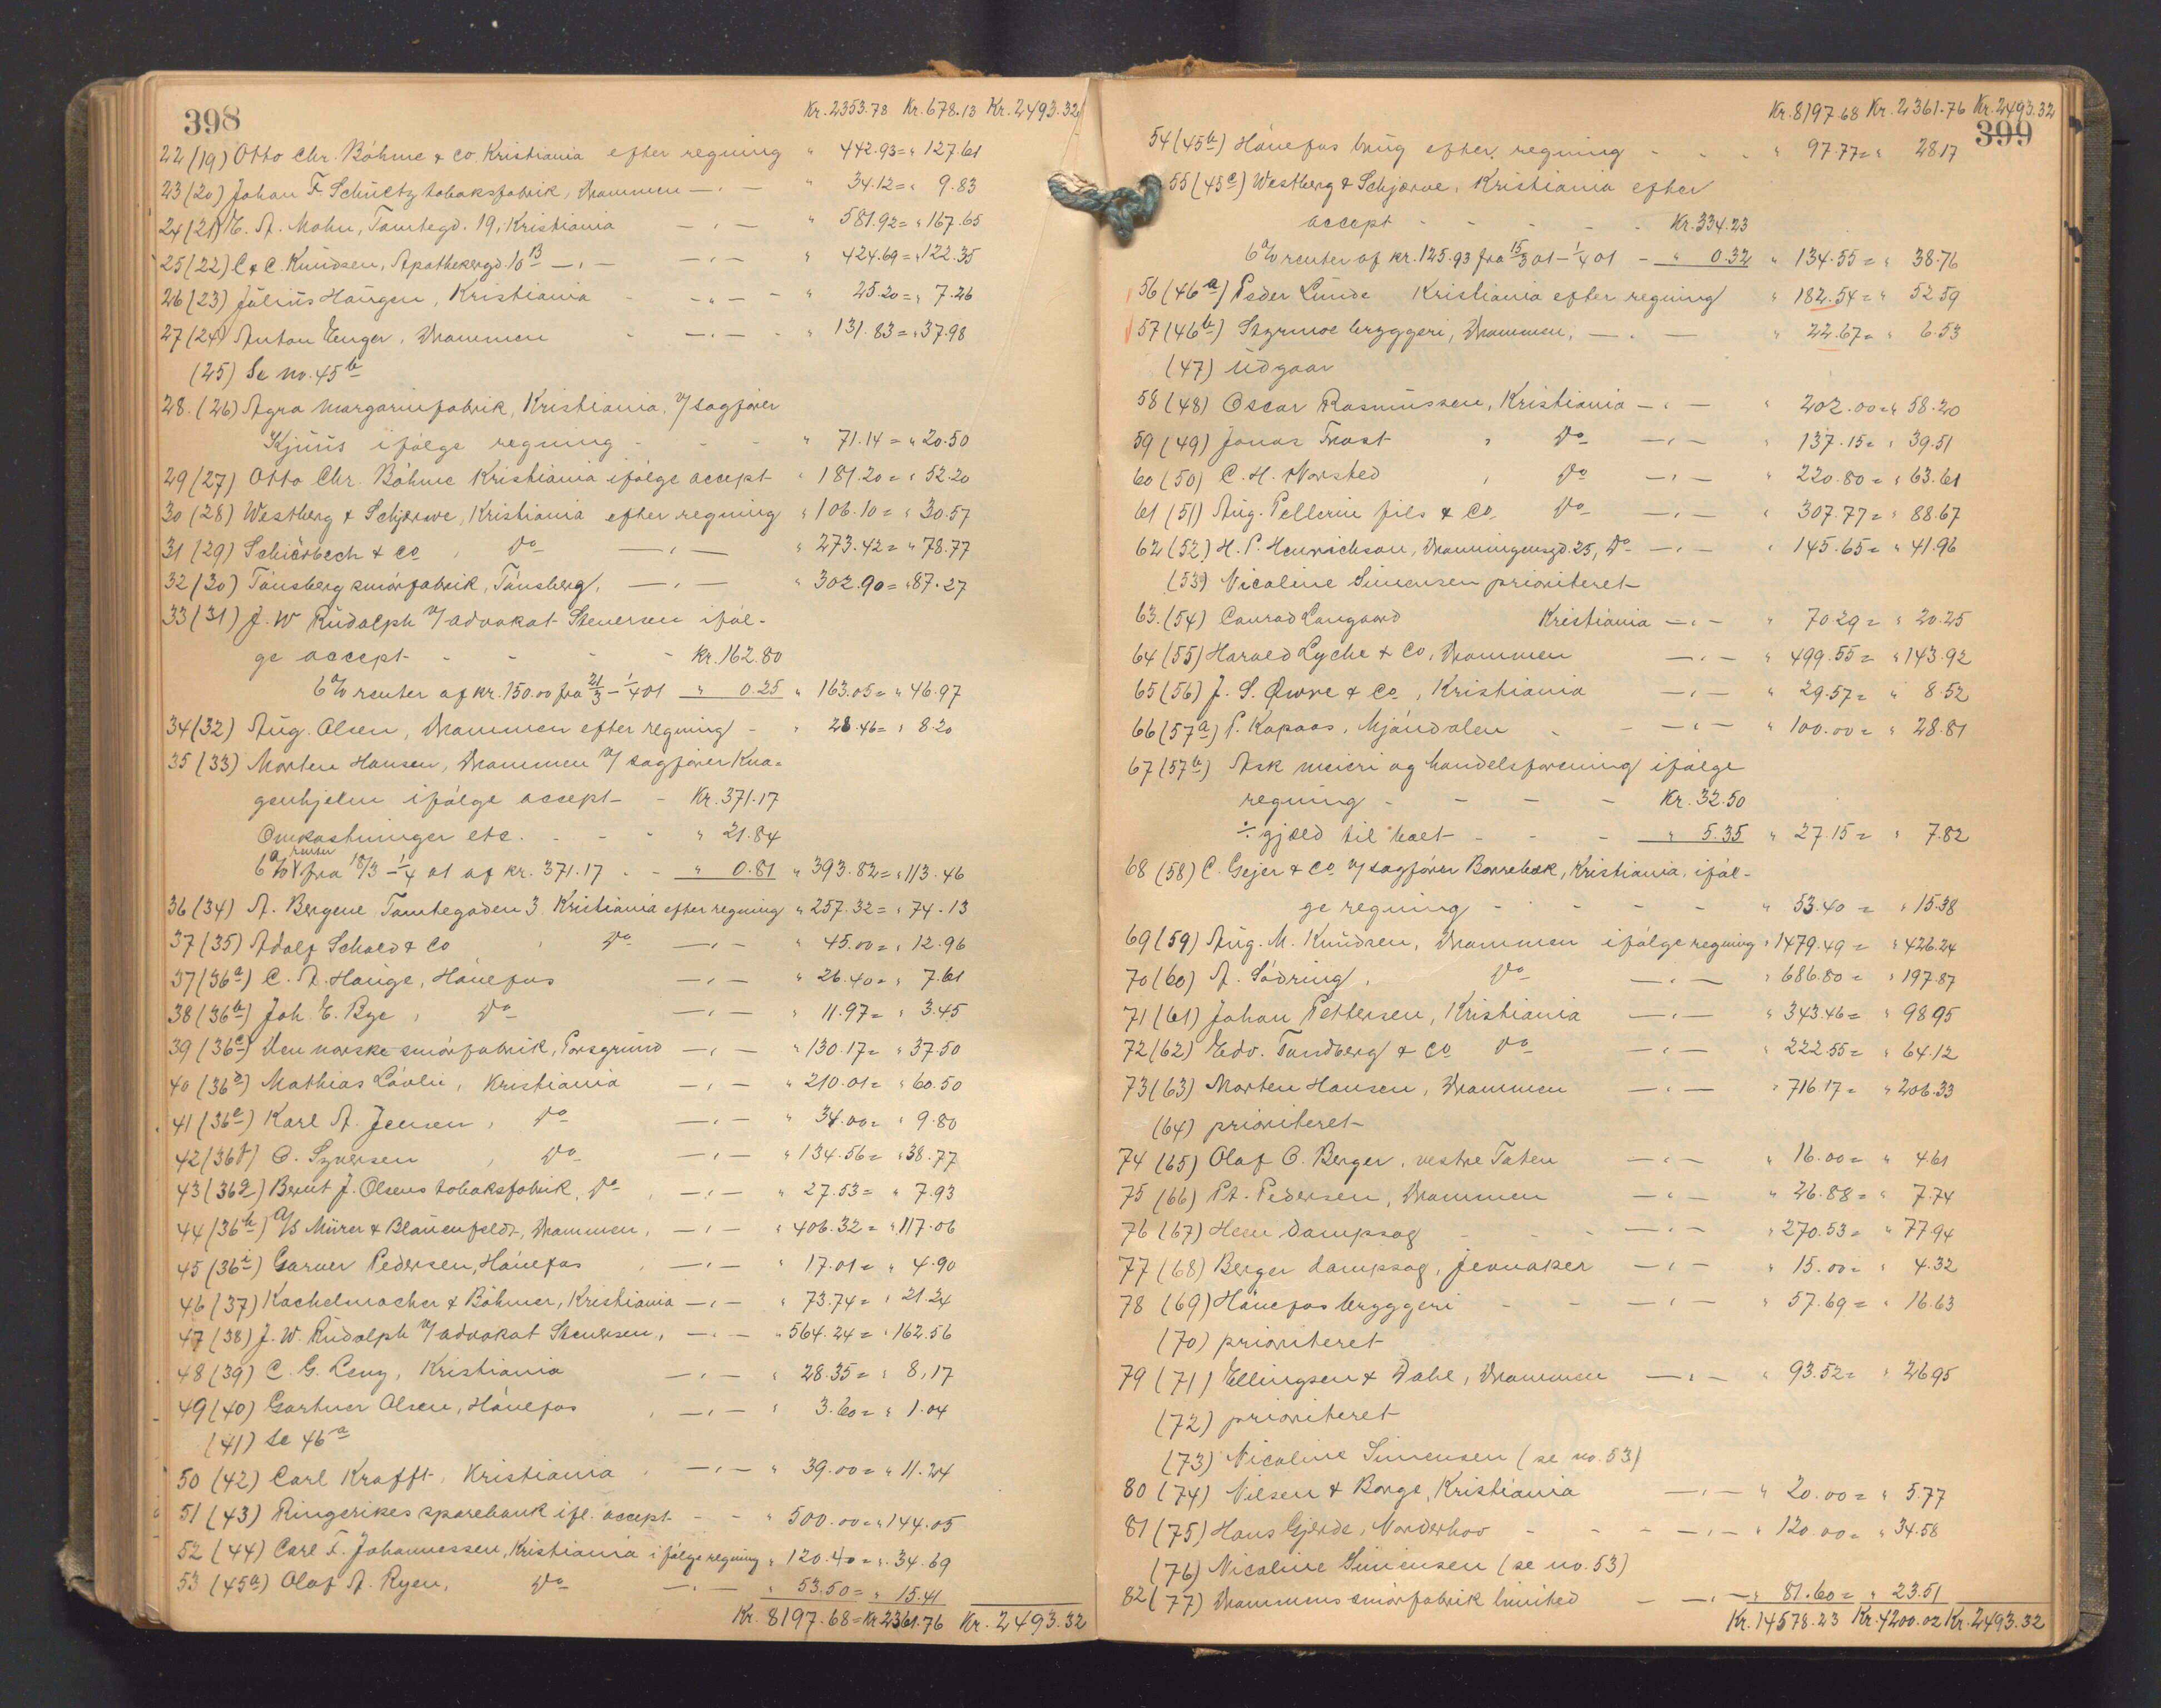 398
Kr. 2353.78 Kr. 678.13 Kr. 2493.32
22 (19) Otto Chr. Böhme & Co, Kristiania efter regning " 442.93 = " 127.61
23 (20) Johan F. Schültz tobaksfabrik, Drammen —"— " 34.12 = " 9.83
24 (21) E. A. Mohn, Tomtegd. 19, Kristiania —"— " 581.92 = " 167.65
25 (22) C & C. Knudsen, Apothekergd. 10 B —"— —"— " 424.69 = " 122.35
26 (23) Julius Haugen, Kristiania - —"— - " 25.20 = " 7.26
27 (24) Anton Enger, Drammen - —"— - " 131.83 = " 37.98
(25) Se no. 45 b
28. (26) Agra margarinfabrik, Kristiania, v/ sagfører
Kjuus ifølge regning - - - " 71.14 = " 20.50
29 (27) Otto Chr. Böhme Kristiania ifølge accept " 181.20 = " 52.20
30 (28) Westberg & Schjærve, Kristiania efter regning " 106.10 = " 30.57
31 (29) Schiörbech & Co, do —"— " 273.42 = " 78.77
32 (30) Tönsberg smörfabrik, Tönsberg, —"— " 302.90 = " 87.27
33 (31) J. W Rudolph v/ advokat Stenersen iföl-
ge accept - - - - Kr. 162.80
6% renter af kr. 150.00 fra 21/3 - 1/4 01 " 0.25 " 163.05 = " 46.97
34 (32) Aug. Olsen, Drammen efter regning - " 28.46 = " 8.20
35 (33) Morten Hansen, Drammen v/ sagfører Kna=
genhjelm ifølge accept - Kr. 371.17
Omkostninger etc. - - - " 21.84
6% renter fra 18/3 - 1/4 01 af kr. 371.17 - - " 0.81 " 393.82 = " 113.46
36 (34) A. Bergene Tomtegaden 3 Kristiania efter regning " 257.32 = " 74.13
37 (35) Adolf Schold & Co , do —"— " 45.00 = " 12.96
37 (36 a) C. A. Hauge, Hönefos —"— " 26.40 = " 7.61
38 (36 b) Joh. E. Bye, do —"— " 11.97 = " 3.45
39 (36 c) Den norske smörfabrik, Porsgrund —"— " 130.17 = " 37.50
40 (36 d) Mathias Lövlie, Kristiania —"— " 210.01 = " 60.50
41 (36 e) Karl A. Jensen, do —"— " 34.00 = " 9.80
42 (36 f) O. Syversen , do —"— " 134.56 = " 38.77
43 (36 g) Bernt J. Olsens tobaksfabrik, do , —"— " 27.53 = " 7.93
44 (36 h) A/S Mürer & Blauenfeldt, Drammen, —"— " 406.32 = " 117.06
45 (36 i) Garver Pedersen, Hönefos , —"— " 17.01 = " 4.90
46 (37) Kachelmacher & Böhmer, Kristiania —"— " 73.74 = " 21.24
47 (38) J. W. Rudolph v/ advokat Stenersen, —"— " 564.24 = " 162.56
48 (39) C. G. Leny, Kristiania —"— " 28.35 = " 8,17
49 (40) Gartner Olsen, Hönefos , —"— " 3.60 = " 1.04
(41) se 46 a
50 (42) Carl Krafft, Kristiania , —"— " 39.00 = " 11.24
51 (43) Ringerikes sparebank ifl. accept - - " 500.00 = " 144.05
52 (44) Carl F. Johannessen, Kristiania ifølge regning " 120.40 = " 34.69
53 (45 a) Olaf A. Ryen, do —"— " 53.50 = " 15.41
Kr. 8197.68 = Kr 2361.76 Kr. 2493.32
Kr. 8197.68 Kr. 2361.76 Kr. 2493.32
399
54 (45 b) Hönefos brug efter regning - - - " 97.77 = " 28.17
55 (45 c) Westberg & Schjærve, Kristiania efter
accept - - - - - Kr. 334.23
6% renter af kr. 125.93 fra 15/3 01 - 1/4 01 - " 0.32 " 134.55 = " 38.76
56 (46 a) Peder Lunde Kristiania efter regning " 182.54 = " 52 59
57 (46 b) Styrmoe bryggeri, Drammen, —"— " 22.67 = " 6.53
(47) udgaar
58 (48) Oscar Rasmussen, Kristiania —"— " 202.00 = " 58.20
59 (49) Jonas Trost , do —"— " 137.15 = " 39.51
60 (50) C. H. Norsted , do —"— " 220.80 = " 63.61
61 (51) Aug. Pellerin fils & Co do —"— " 307.77 = " 88.67
62 (52) H. P. Henrichson, Dronningensgd. 25, do —"— " 145.65 = " 41.96
(53) Nicoline Simensen prioriteret
63. (54) Conrad Langaard Kristiania —"— " 70 29 = " 20.25
64 (55) Harald Lyche & Co, Drammen —"— " 499.55 = " 143.92
65 (56) J. S. Øwre & Co, Kristiania —"— " 29.57 = " 8.52
66 (57 a) P. Kopaas, Mjöndalen - —"— " 100.00 = " 28.81
67 (57 b) Ask meieri og handelsforening ifølge
regning - - - - Kr. 32.50
÷ gjæld til boet - - - " 5.35 " 27.15 = " 7.82
68 (58) C. Gejer & Co v/ sagfører Borrebæk, Kristiania, iföl-
ge regning - - - - " 53.40 = " 15.38
69 (59) Aug. M. Knudsen, Drammen ifølge regning " 1479.49 = " 426.24
70 (60) A. Södring, do —"— " 686.80 = " 197.87
71 (61) Johan Pettersen, Kristiania —"— " 343.46 = " 98 95
72 (62) Edv. Tandberg & Co do —"— " 222.55 = " 64.12
73 (63) Morten Hansen, Drammen —"— " 716.17 = " 206.33
(64) prioriteret
74 (65) Olaf O. Berger, vestre Toten —"— " 16.00 = " 4 61
75 (66) Pt. Pedersen, Drammen —"— " 26.88 = " 7.74
76 (67) Heen dampsag - - - —"— " 270.53 = " 77.94
77 (68) Berger dampsag, Jevnaker —"— " 15.00 = " 4.32
78 (69) Hönefos bryggeri - - —"— " 57.69 = " 16.63
(70) prioriteret
79 (71) Ellingsen & Dahl, Drammen —"— " 93.52 = " 26 95
(72) prioriteret
(73) Nicoline Simensen (se no. 53)
80 (74) Nilsen & Borge, Kristiania —"— " 20.00 = " 5.77
81 (75) Hans Gjerde, Norderhov - - - —"— " 120.00 = " 34.58
(76) Nicoline Simensen (se no. 53)
82 (77) Drammens smörfabrik limited - —"— " 81.60 = " 23.51
Kr. 14578.23 Kr. 4200.02 Kr. 2493.32